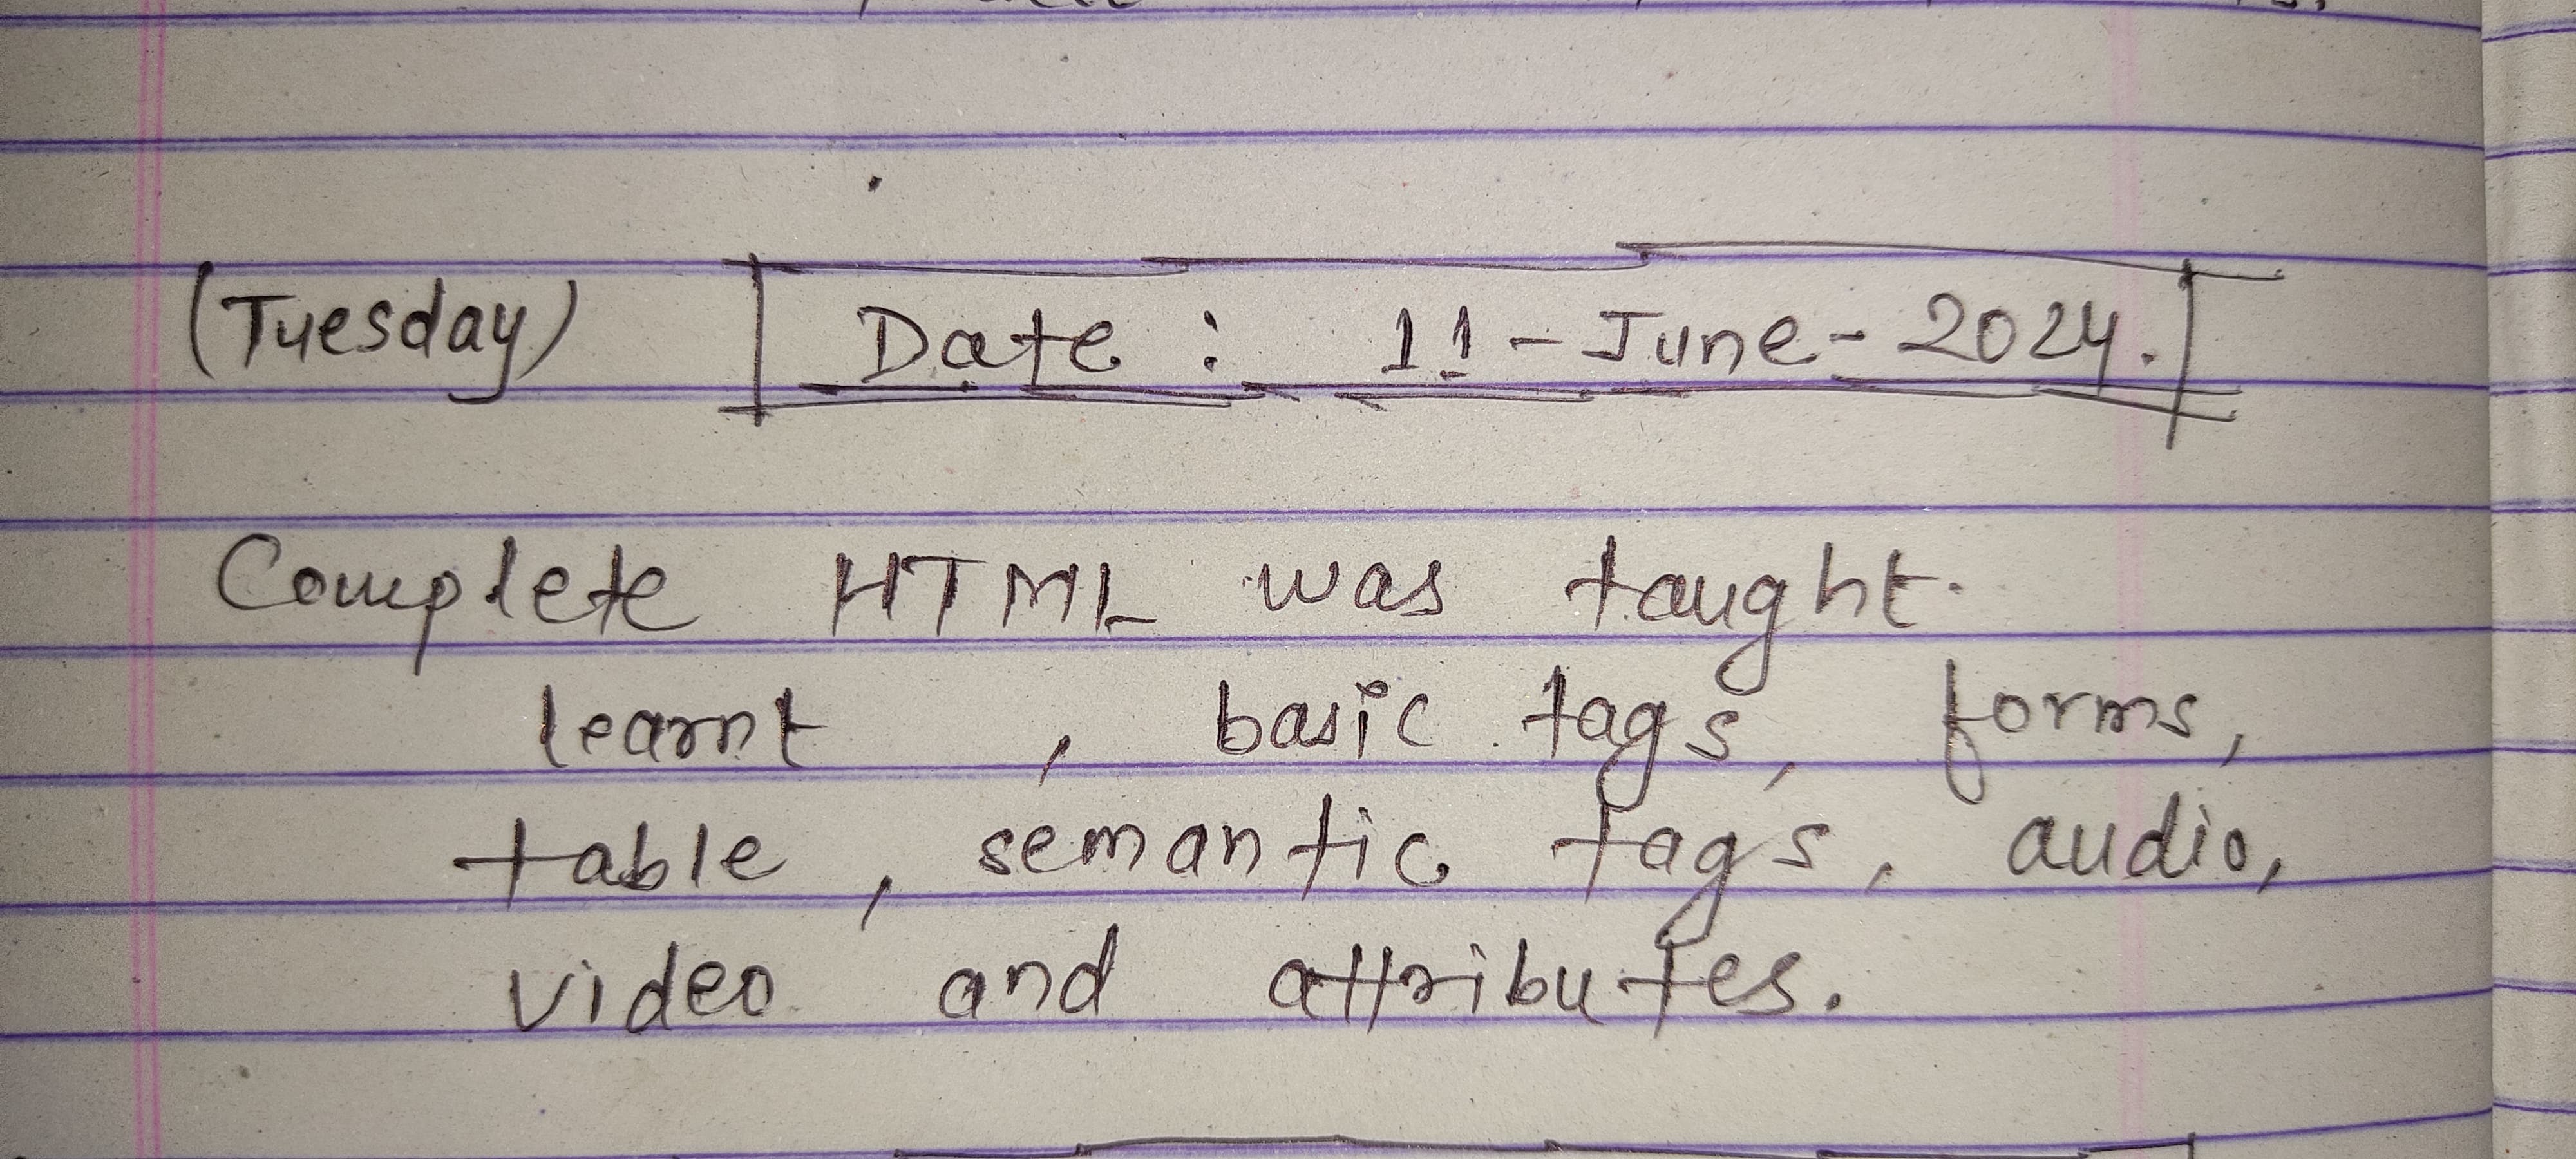 (Tuesday) Date : 11-June-2024.
Complete HTML was taught.
learnt , basic tags, forms,
table , semantic tags, audio,
video and attributes.